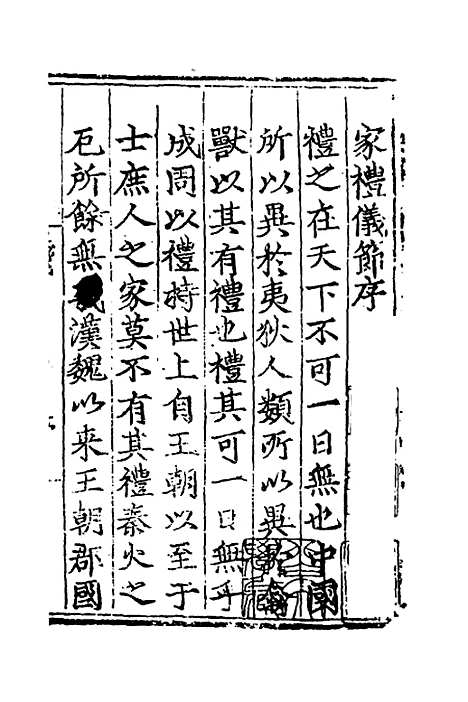 家禮儀節序
禮之在天下不可一日無也中國
所以異於夷狄人類所以異
獸以其有禮也禮其可一日無乎
成周以禮持世上自王朝以至于
士庶人之家莫不有其禮秦火之
厄所餘無漢魏以来王朝郡國